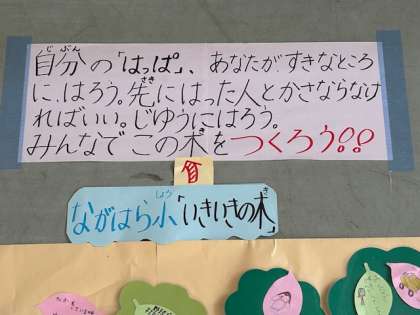 自分の「はっぱ」、あなたがすきなところ
に、はろう。先にはった人とかさならなけ
ればいい。じゆうにはろう。
みんなでこの木をつくろう!!
ながはら小「いきいきの木」